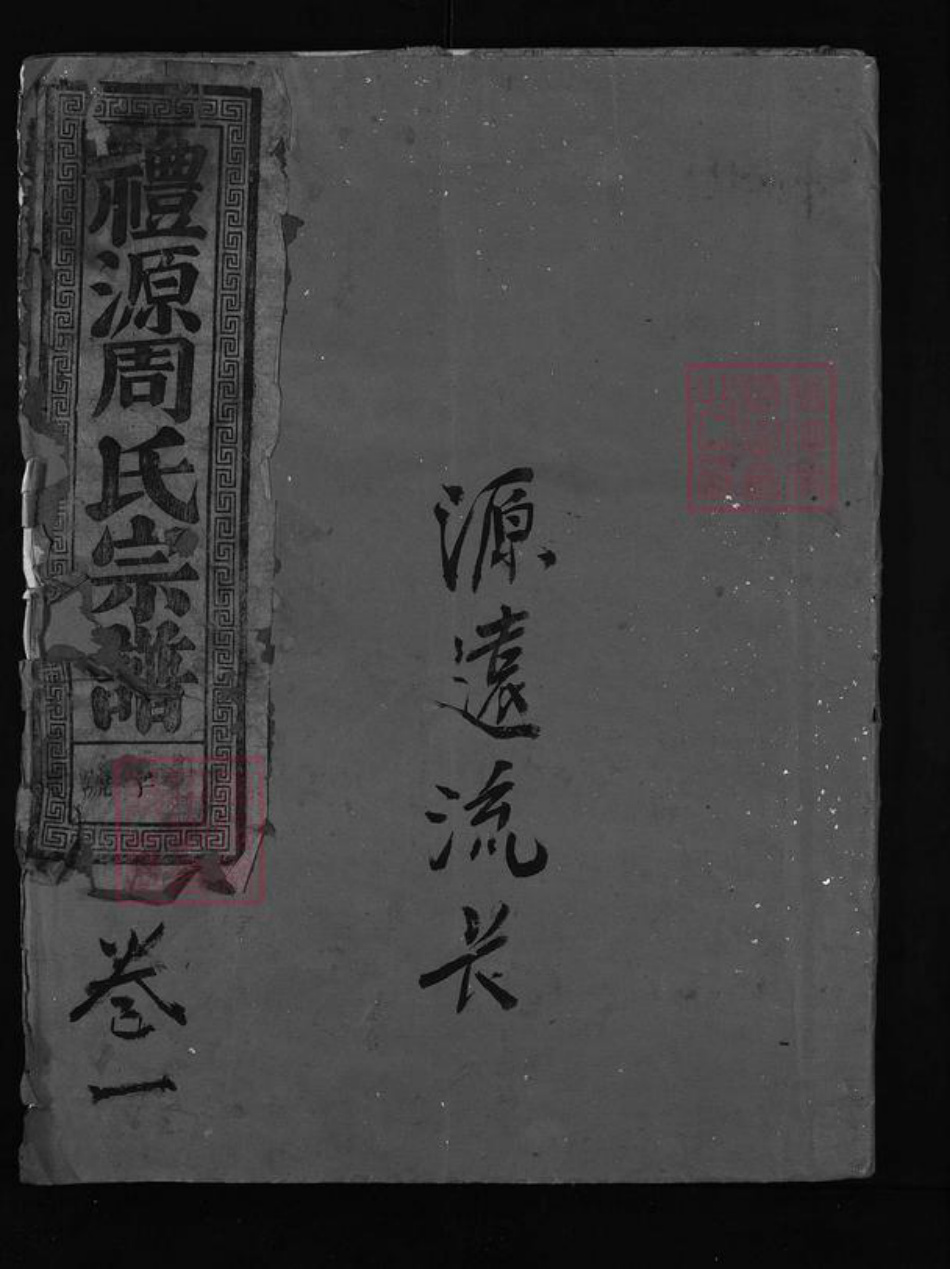 禮源周氏宗譜
號
卷一
源遠流长